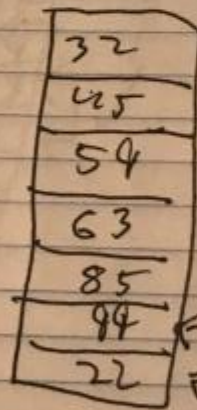 32
45
54
63
85
94
22